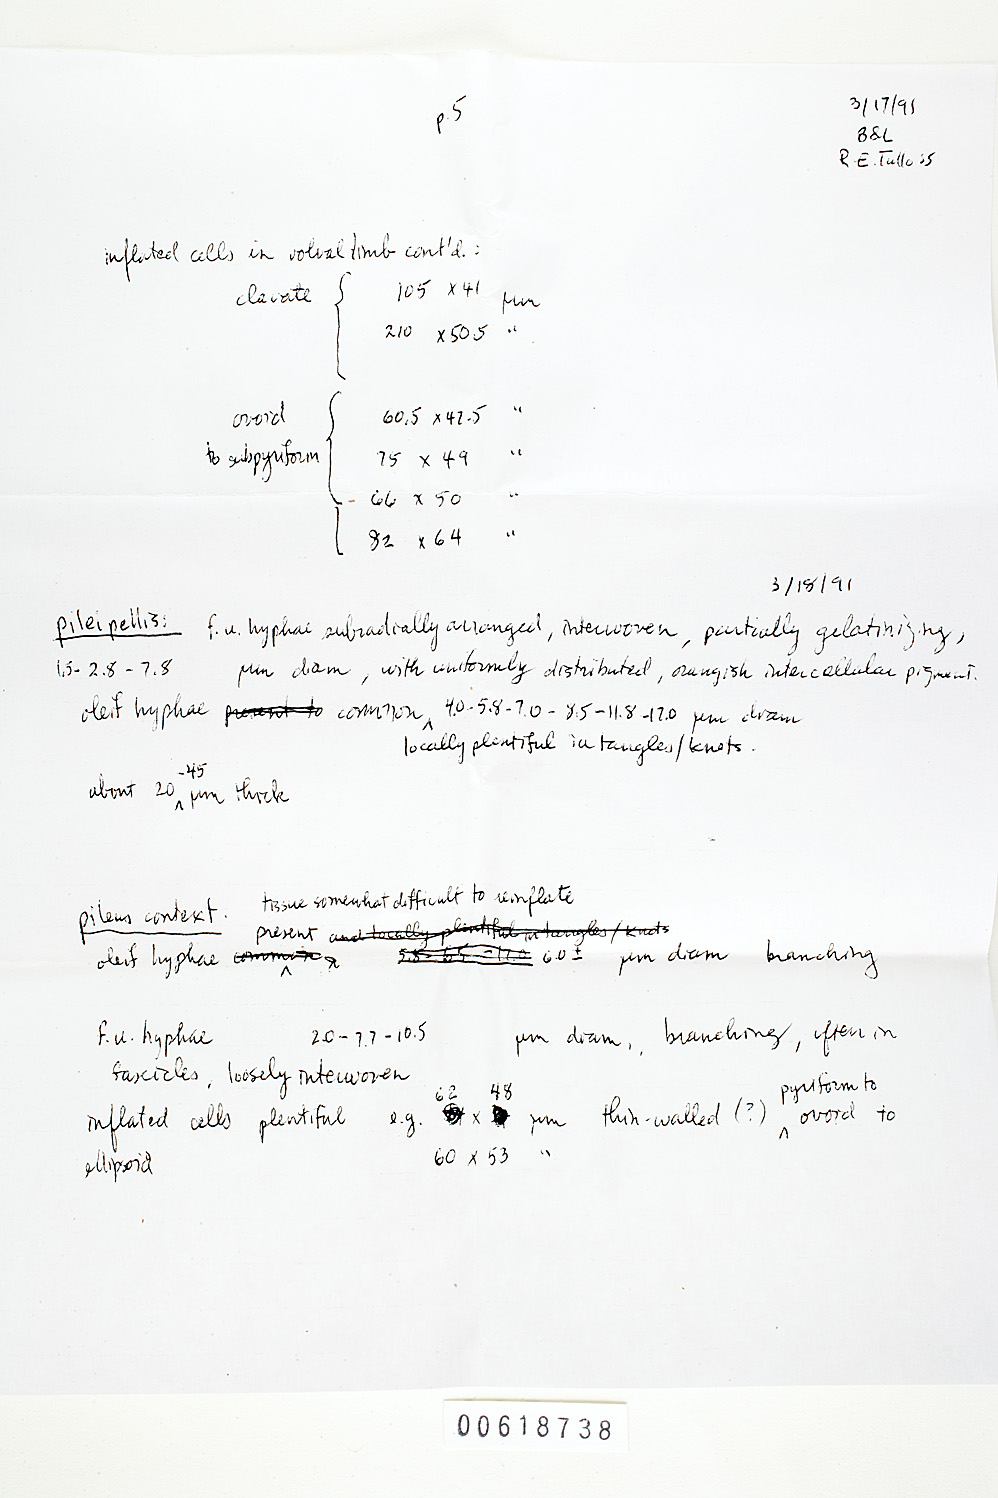 p.5
3/17/91
B&L
R.E. Tulloss
inflated cells in volval limb cont'd. :
clavate 105 x 41 µm
210 x 50.5 "
ovoid 60.5 x 42.5 "
to subpyriform 75 x 49 "
66 x 50 "
82 x 64 "
3/18/91
pileipellis: f.u. hyphae subradially arranged, interwoven, partially gelatinizing,
1.5 - 2.8 - 7.8 µm diam, with uniformly distributed, orangish intercellular pigment.
oleif hyphae present to common, 4.0 - 5.8 - 7.0 - 8.5 - 11.8 - 17.0 µm diam
locally plentiful in tangles/knots.
about 20 -45 µm thick
pileus context. tissue somewhat difficult to reinflate
present and locally plentiful in tangles/knots
oleif hyphae common 5.8 - 6.5 - 17.0 6.0 ± µm diam branching
f.u. hyphae 2.0 - 7.7 - 10.5 µm diam, branching, often in
fascicles, loosely interwoven
inflated cells plentiful e.g. 62 x 48 µm thin-walled (?) pyriform to ovoid to
ellipsoid 60 x 53 "
00618738